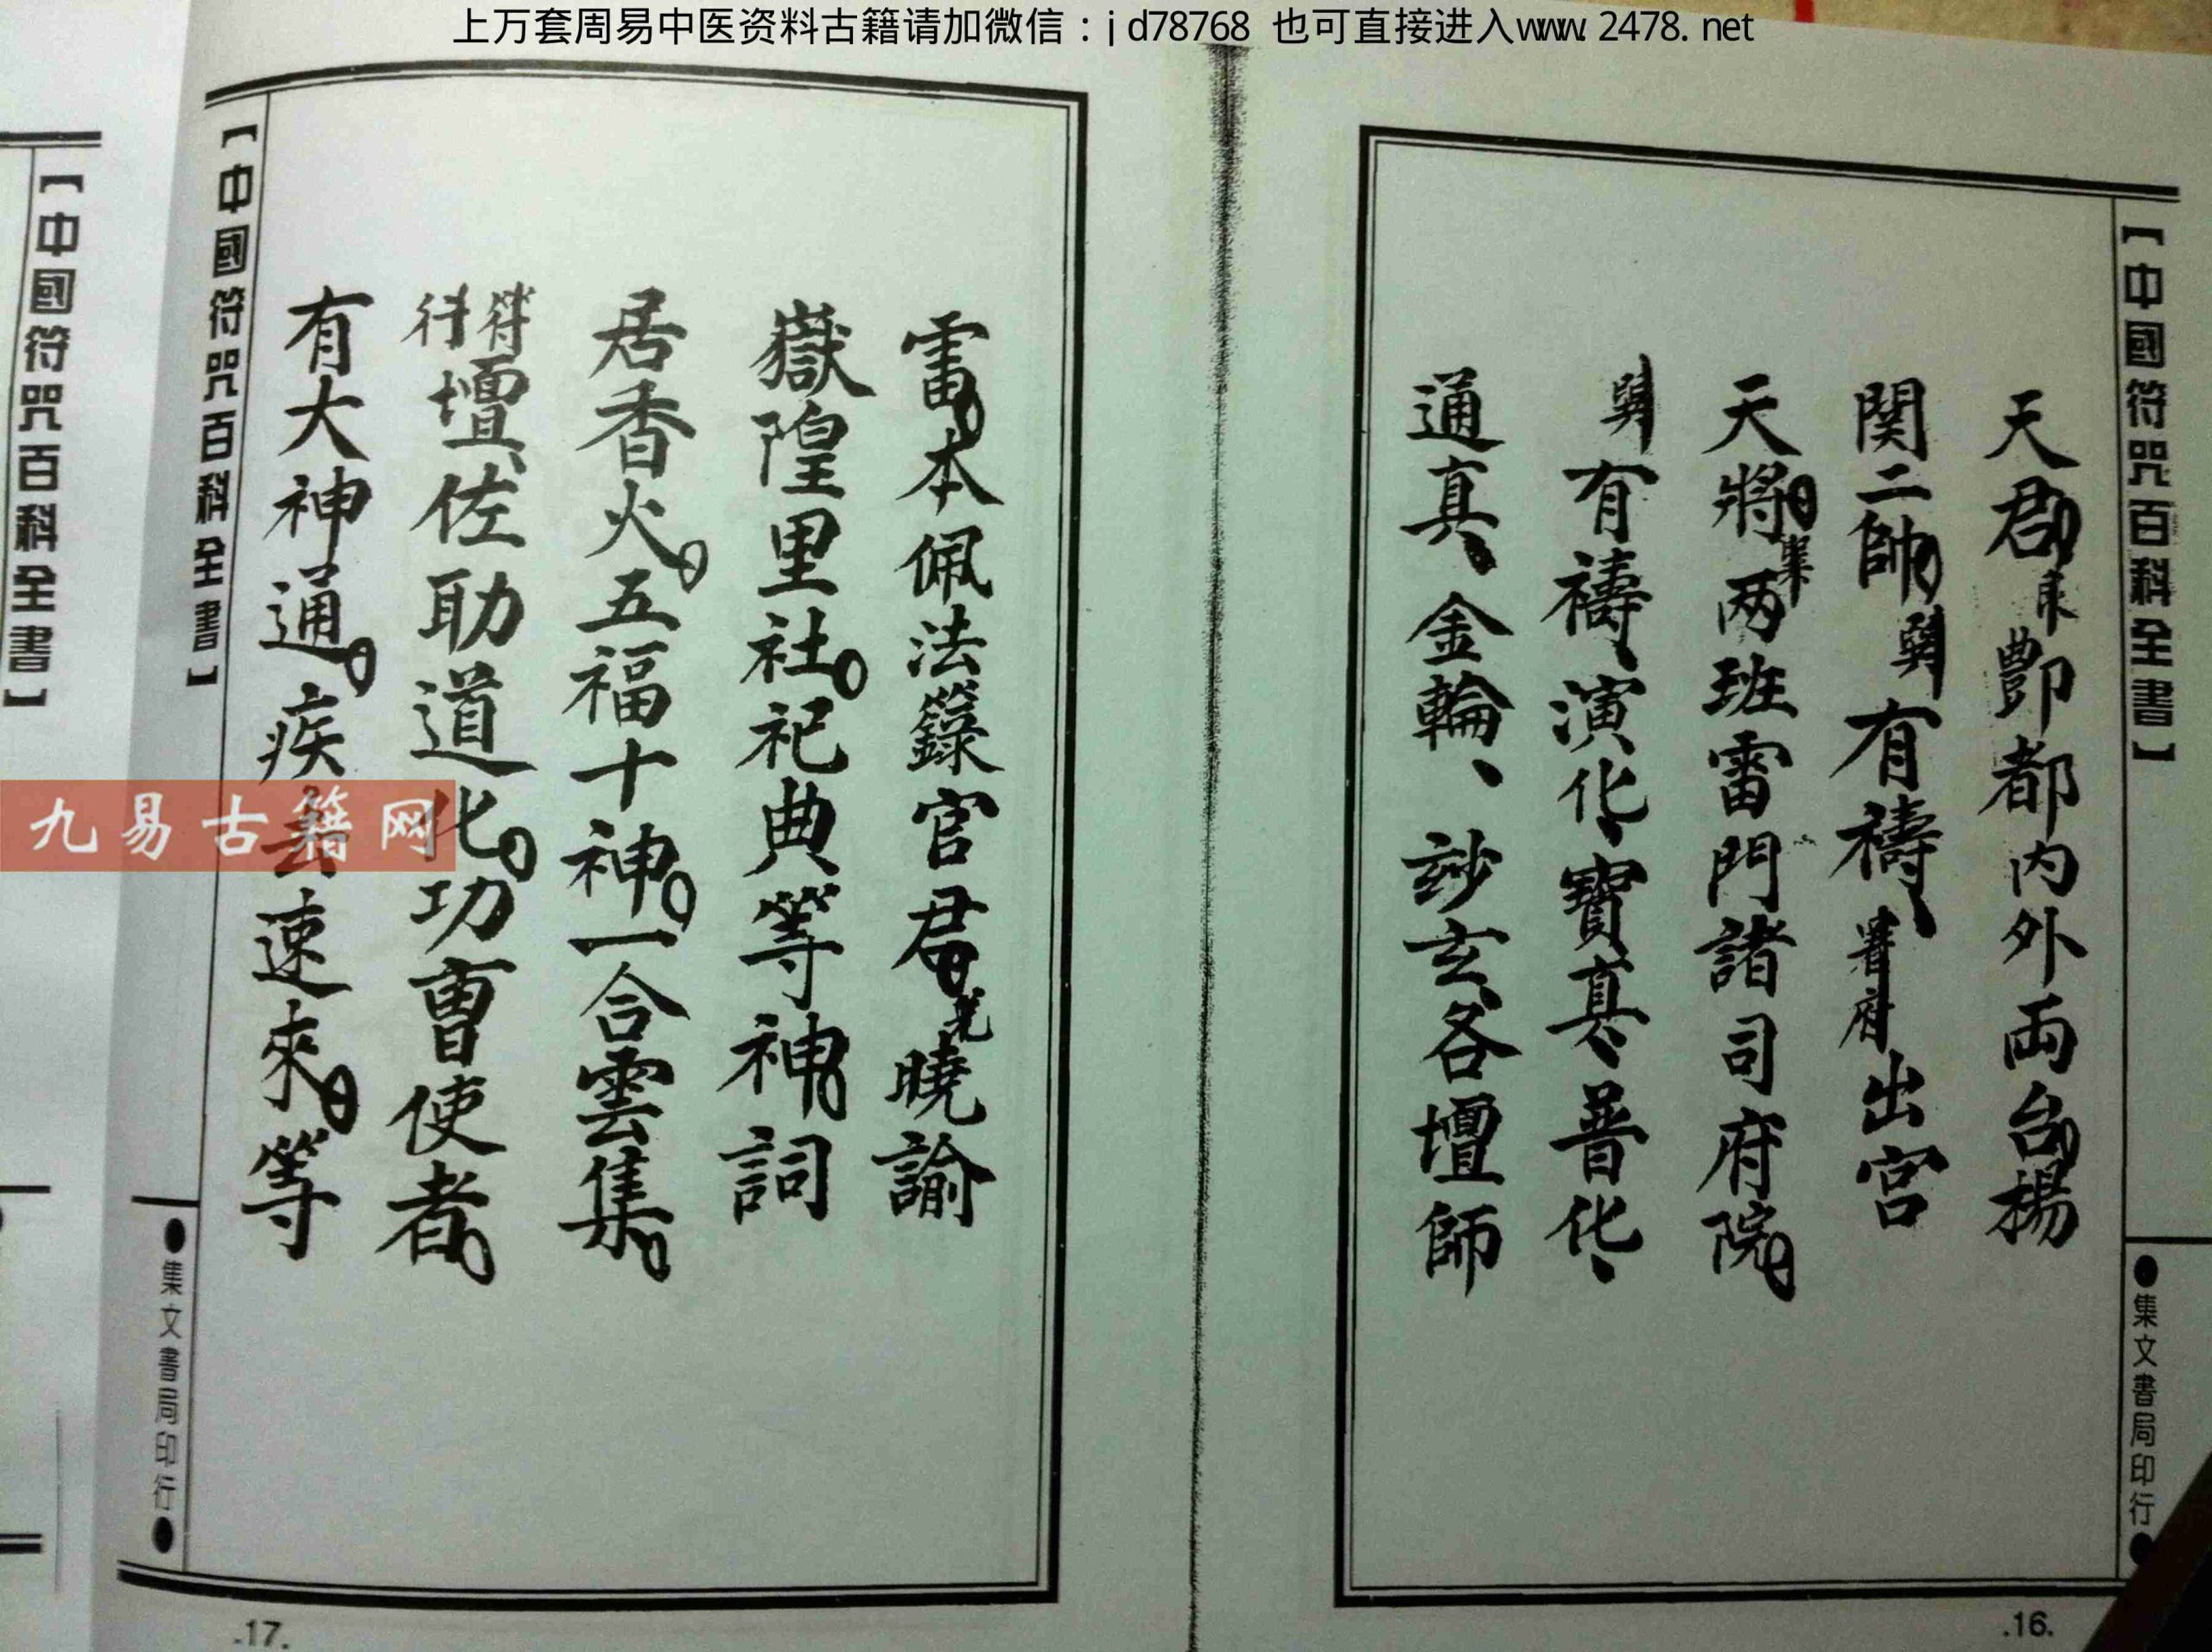 上万套周易中医资料古籍请加微信：jd78768 也可直接进入www.2478.net
【中國符咒百科全書】
天君酆都内外両台楊
関二帥有禱出宮
天將两班雷門諸司府院
有禱、演化、寶真、普化、
通真、金輪、玅玄、各壇師
●集文書局印行●
.16.
雷本佩法籙官君曉諭
嶽隍里社祀典等神詞
居香火五福十神一合雲集
符行壇佐助道化功曹使者
有大神通疾去速來等
【中國符咒百科全書】
●集文書局印行●
.17.
【中國符咒百科全書】
九易古籍网